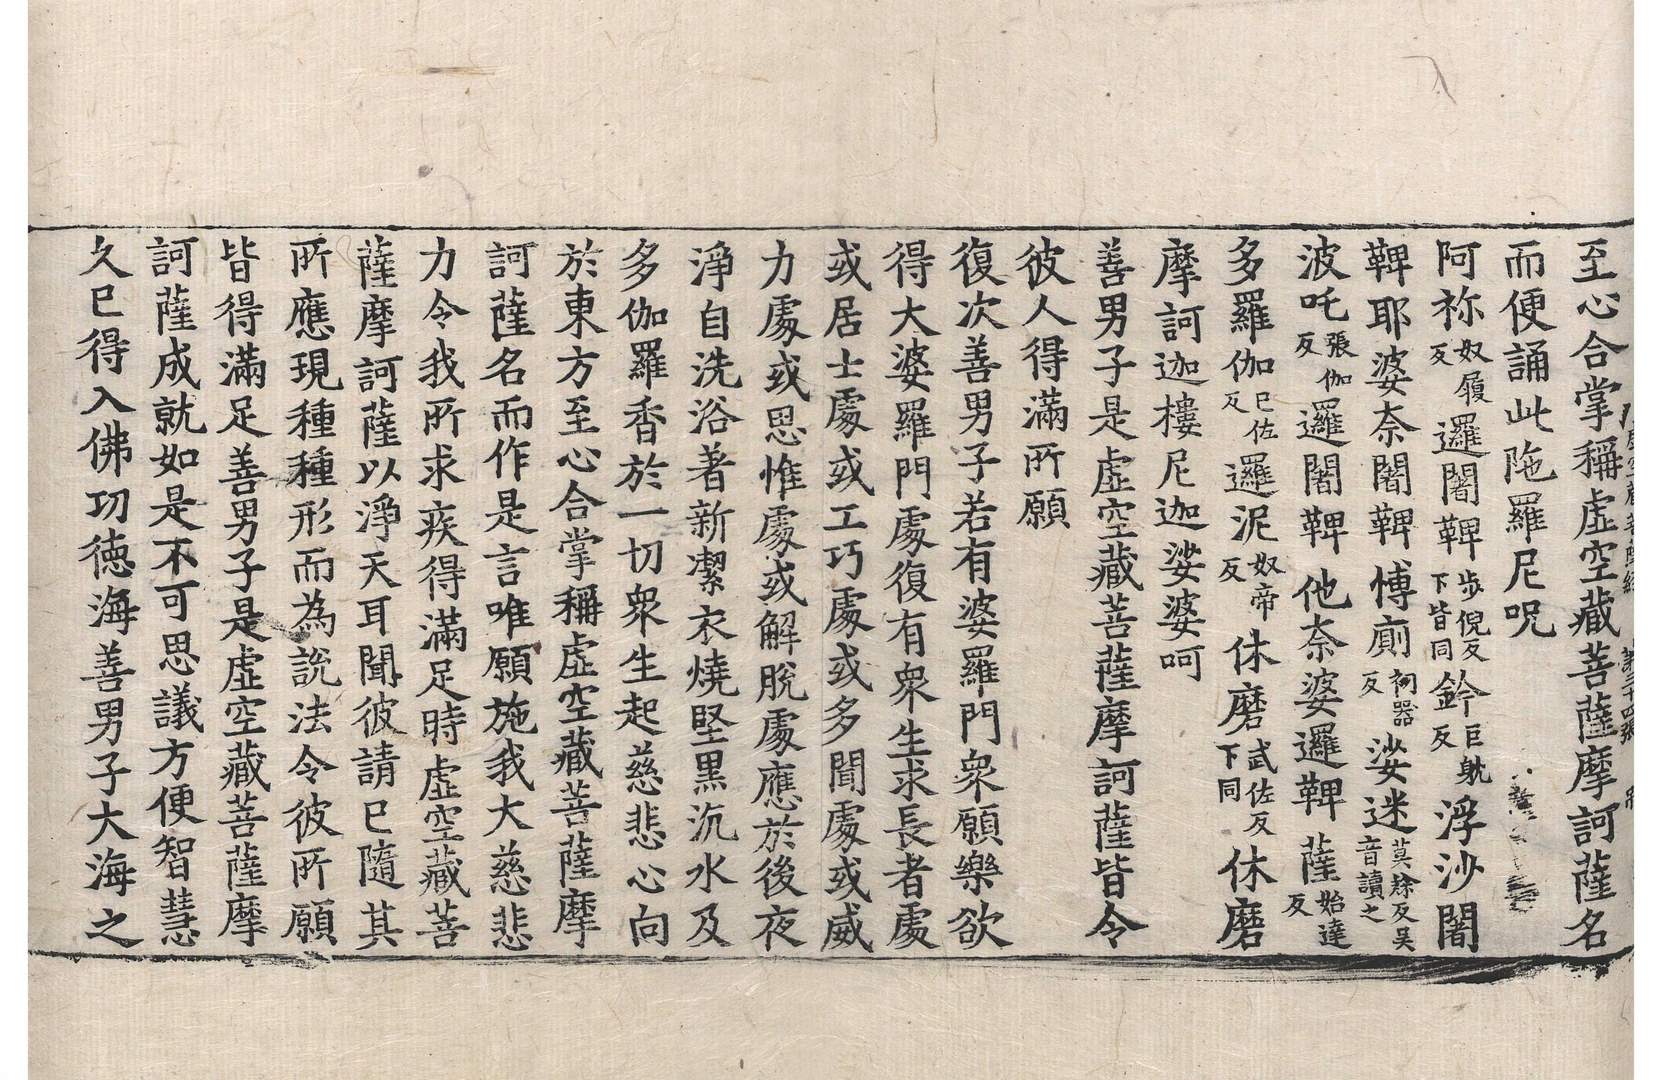 至心合掌稱虛空藏菩薩摩訶薩名
而便誦此陁羅尼呪
阿祢奴履反邏闍鞞步倪反下皆同鈴巨躭反浮沙闍
鞞耶婆奈闍鞞慱廁祠器反娑迷莫隸反吴音讀之
波吒張伽反邏闍鞞他奈婆邏鞞薩始達反
多羅伽已佐反邏泥奴帝反休磨武佐反下同休磨
摩訶迦樓尼迦娑婆呵
善男子是虛空藏菩薩摩訶薩皆令
彼人得滿所願
復次善男子若有婆羅門衆願樂欲
得大婆羅門處復有衆生求長者處
或居士處或工巧處或多聞處或威
力處或思惟處或解脫處應於後夜
淨自洗浴著新潔衣燒堅黑沉水及
多伽羅香於一切衆生起慈悲心向
於東方至心合掌稱虛空藏菩薩摩
訶薩名而作是言唯願施我大慈悲
力令我所求疾得滿足時虛空藏菩
薩摩訶薩以淨天耳聞彼請已隨其
所應現種種形而為說法令彼所願
皆得滿足善男子是虛空藏菩薩摩
訶薩成就如是不可思議方便智慧
久已得入佛功德海善男子大海之